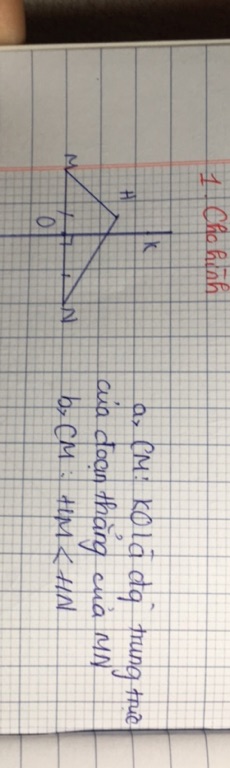 1. Cho hình
M
H
K
O
N
a, CM: KO là đg trung trực
của đoạn thẳng của MN
b, CM: HM < HN